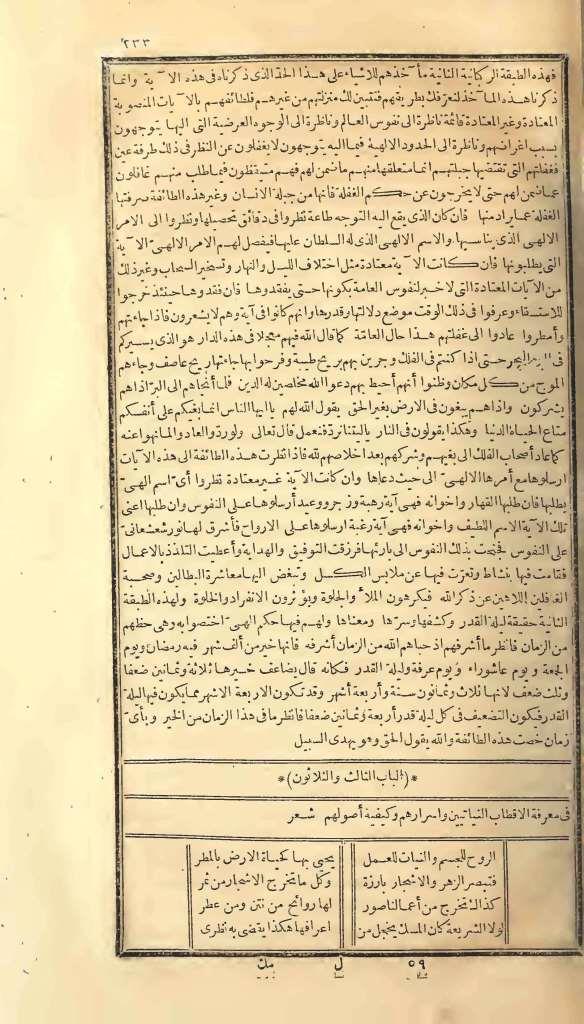 ٢٣٣
فهذه الطبقة الركبانية الثانية مآخذهم للاشياء على هذا الحد الذى ذكرناه فى هذه الآية وانما
ذكرنا هذه المآخذ لنعرفك بطريقهم فتتبين لك منزلتهم من غيرهم فلطائفهم بالآيات المنصوبة
المعتادة وغير المعتادة قائمة ناظرة الى نفوس العالم وناظرة الى الوجوه العرضية التى اليها يتوجهون
بسبب اغراضهم وناظرة الى الحدود الالهية فيما اليه يتوجهون لا يغفلون عن النظر فى ذلك طرفة عين
فغفلتهم التى تقتضيها جبلتهم انما متعلقها منهم ما ضمن لهم فهم متيقظون فيما طلب منهم غافلون
عما ضمن لهم حتى لا يخرجون عن حكم الغفلة فانها من جبلة الانسان وغير هذه الطائفة صرفتها
الغفلة عما يراد منها فان كان الذى يقع اليه التوجه طاعة نظروا فى دقائق تحصيلها ونظروا الى الامر
الالهى الذى يناسبها والاسم الالهى الذى له السلطان عليها فيفصل لهم الامر الالهى الآية
التى يطلبونها فان كانت الآية معتادة مثل اختلاف الليل والنهار وتسخير السحاب وغير ذلك
من الآيات المعتادة التى لا خبر لنفوس العامة بكونها حتى يفقدوها فان فقدوها حينئذ خرجوا
للاستسقاء وعرفوا فى ذلك الوقت موضع دلالتها وقدرها وانهم كانوا فى آية وهم لا يشعرون فاذا جاءتهم
وأمطروا عادوا الى غفلتهم هذا حال العامة كما قال الله فيهم معجلا فى هذه الدار هو الذى يسيركم
فى البر والبحر حتى اذا كنتم فى الفلك وجرين بهم بريح طيبة وفرحوا بها جاءتها ريح عاصف وجاءهم
الموج من كل مكان وظنوا أنهم أحيط بهم دعوا الله مخلصين له الدين فلما أنجاهم الى البر اذاهم
يشركون واذاهم يبغون فى الارض بغير الحق يقول الله لهم يا ايها الناس انما بغيكم على أنفسكم
متاع الحياة الدنيا وهكذا يقولون فى النار ياليتنا نرد فنعمل قال تعالى ولو ردوا لعادوا لما نهوا عنه
كما عاد أصحاب الفلك الى بغيهم وشركهم بعد اخلاصهم لله فاذا نظرت هذه الطائفة الى هذه الآيات
ارسلوها مع أمرها الالهى الى حيث دعاها وان كانت الآية غير معتادة نظروا أى اسم الهى
يطلبها فان طلبها القهار واخوانه فهى آية رهبة وزجر ووعيد أرسلوها على النفوس وان طلبها اعنى
تلك الآية الاسم اللطيف واخوانه فهى آية رغبة ارسلوها على الارواح فأشرق لها نور شعشعانى
على النفوس فجنحت بذلك النفوس الى بارئها فرزقت التوفيق والهداية وأعطيت التلذذ بالاعمال
فقامت فيها بنشاط وتعرت فيها عن ملابس الكسل وتبغض اليها معاشرة البطالين وصحبة
الغافلين اللاهين عن ذكر الله فيكرهون الملأ والجلوة ويؤثرون الانفراد والخلوة ولهذه الطبقة
الثانية حقيقة ليلة القدر وكشفها وسرها ومعناها ولهم فيها حكم الهى اختصوا به وهى حظهم
من الزمان فانظر ما أشرفهم اذ حباهم الله من الزمان أشرفه فانها خير من ألف شهر فيه رمضان ويوم
الجمعة ويوم عاشوراء ويوم عرفة وليلة القدر فكانه قال يضاعف خيرها ثلاثة وثمانين ضعفا
وثلث ضعف لانها ثلاث وثمانون سنة وأربعة أشهر وقد تكون الاربعة الاشهر مما يكون فيها ليلة
القدر فيكون التضعيف فى كل ليلة قدر أربعة وثمانين ضعفا فانظر ما فى هذا الزمان من الخير وبأى
زمان خصت هذه الطائفة والله يقول الحق وهو يهدى السبيل
*(الباب الثالث والثلاثون)*
فى معرفة الاقطاب النياتيين واسرارهم وكيفية أصولهم شعر
الروح للجسم والنيات للعمل يحيى بها كحياة الارض بالمطر
فتبصر الزهر والاشجار بارزة وكل ما تخرج الاشجار من ثمر
كذاك تخرج من أعمالنا صور لها روائح من نتن ومن عطر
لولا الشريعة كان المسك يخجل من اعرافها هكذا يقضى به نظرى
٥٩ ل مك